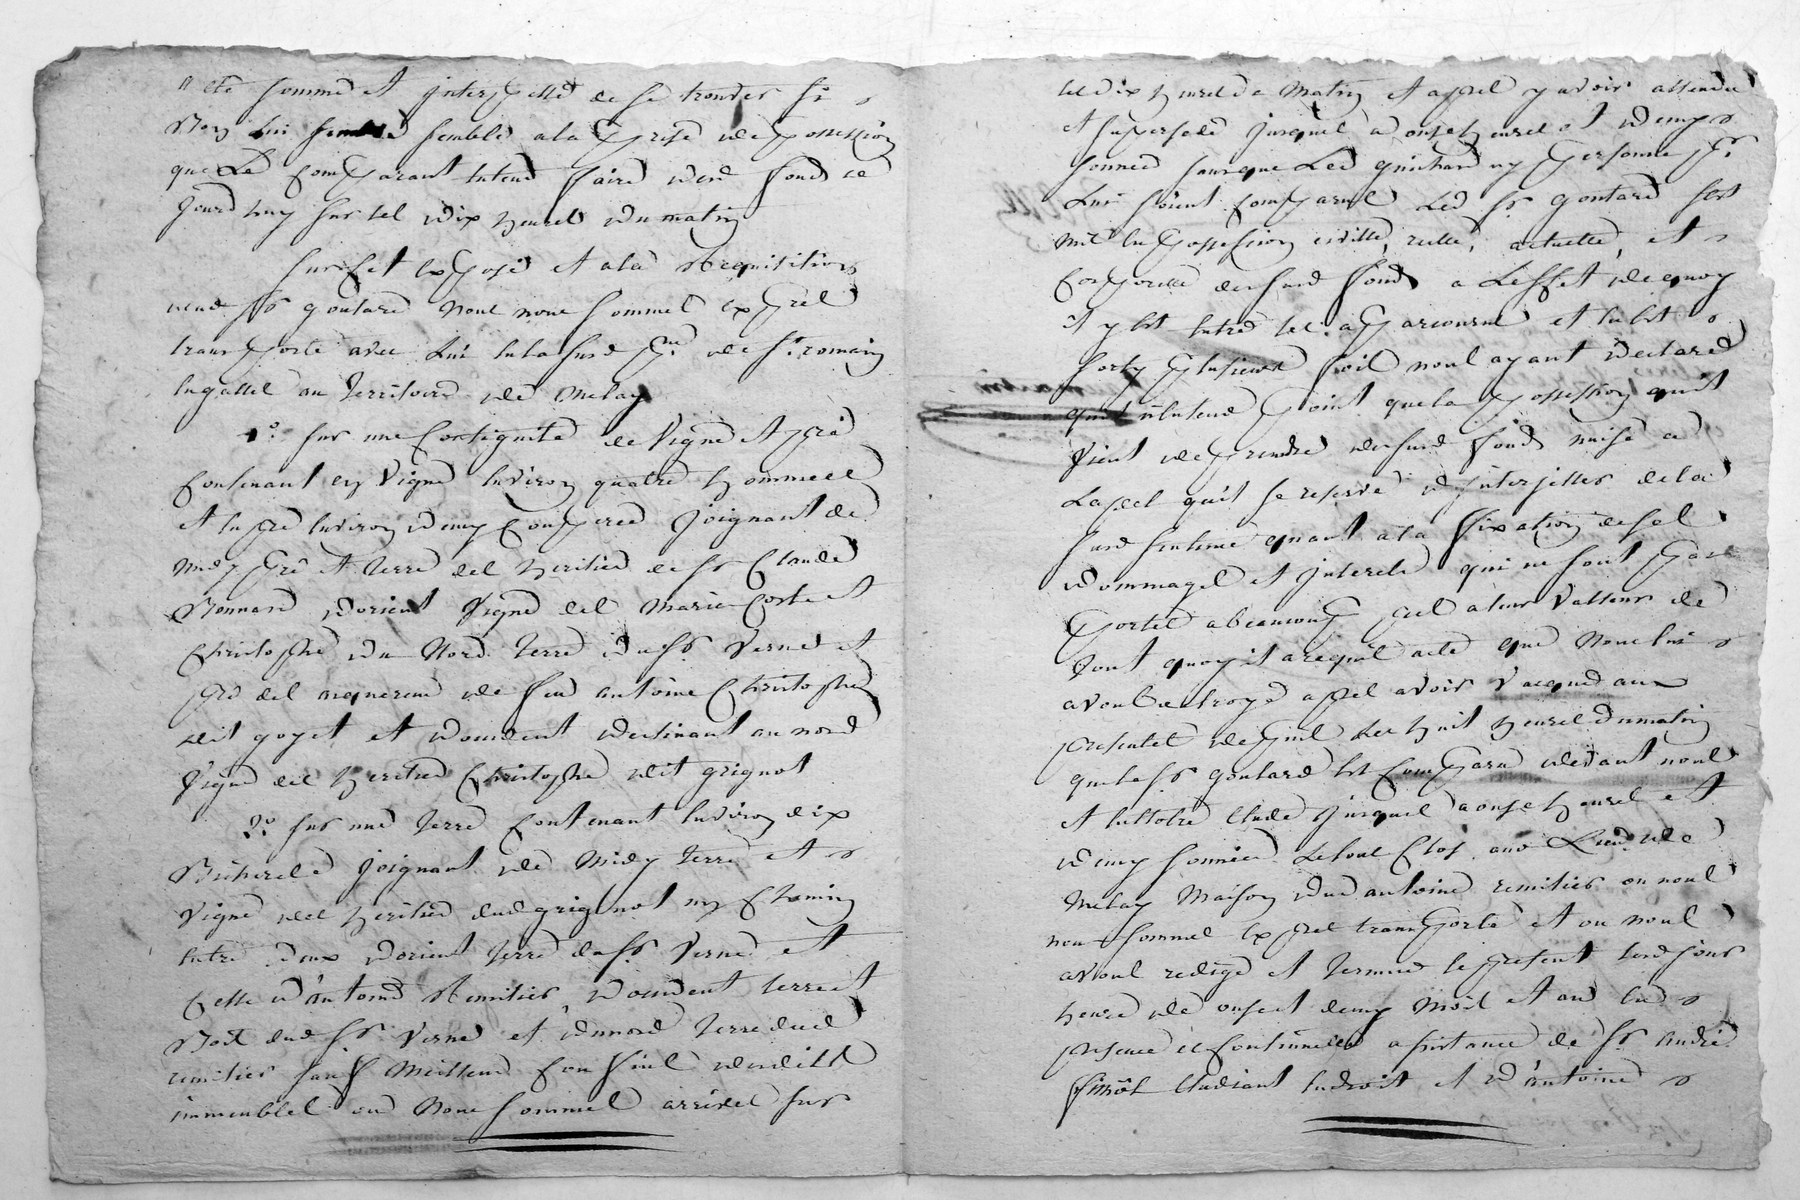 été sommé et interpellé de se trouver si
bon lui semble a la prise de possession
que led comparant entend faire desd fonds ce
jourd huy sur les dix heures du matin
sur cet exposé et a la requisition
dud sr goutard nous nous sommes exprès
transporté avec lui en lasusd psse de st romain
lugassel au territoire de melay
1o. sur une contiguité de vigne et pré
contenant en vigne environ quatre hommees
et en pré environ demy couperée joignant de
midy pré et terre des heritiers de sr Claude
Bonnard d'orient vigne des marie coste et
Christophe du nord terre du sr verne et
pré des acquereurs de feu antoine Christophe
dit goyet et d'occident declinant au nord
vigne des heritiers Christophe dit grignot
2o. sur une terre contenant environ dix
Bicherées joignant de midy terre et
vigne des heritiers dud grignot un chemin
entre deux d'orient terre du sr verne et
celle d'antoine remitier d'occident terre et
Bois dud sr verne et du nord terre dud
remitier sauf meilleurs confins desdits
immeubles ou nous sommes arrivés sur
les dix heures de matin et aprés y avoir attendu
et supersedé jusques a onze heures et demy
sonnées sans que led guichard ny personne pr
lui soient comparus led sr goutard s'est
mis en possession civille, reelle, actuelle, et
corporelle desusd fonds a l'effet de quoy
il y est entré les a parcourus et en est
sorty plusieurs fois nous ayant declaré
qu'il n'entend point que la possession qu'il
vient de prendre desusd fonds nuise a
l'apel qu'il se reserve d'interjetter de la
susd sentence quant a la fixation desd
dommages et interets qui ne sont pas
portés a beaucoup près a leur valleur de
tout quoy il a requis acte que nous lui
avons octroyé aprés avoir vacqué aux
presentes depuis les huit heures du matin
que led sr goutard est comparu devant nous
et en notre etude jusques a onze heures et
demy sonnées. Le tout clos aud Lieu de
melay maison dud antoine remitier ou nous
nous sommes exprès transporté et ou nous
avons redigé et terminé le present lesd jour
heure de onze et demy mois et an en
presence et continuelle assistance de sr andré
simôt etudiant en droit et d'antoine